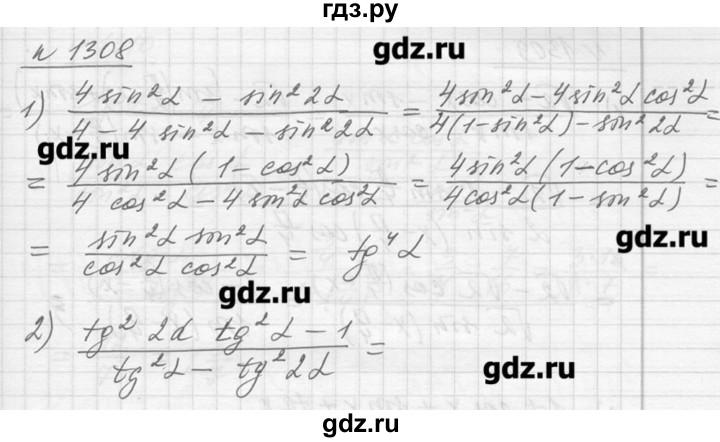 гдз.ру
n 1308 gdz.ru
1) (4 sin²α − sin²2α)/(4 − 4 sin²α − sin²2α) = (4 sin²α − 4 sin²α cos²α)/(4(1−sin²α) − sin²2α) =
gdz.ru
= (4 sin²α (1 − cos²α))/(4 cos²α − 4 sin²α cos²α) = (4 sin²α (1−cos²α))/(4cos²α (1 − sin²α)) =
= (sin²α sin²α)/(cos²α cos²α) = tg⁴α gdz.ru
gdz.ru
2) (tg² 2α tg²α − 1)/(tg²α − tg²2α) =
gdz.ru
gdz.ru